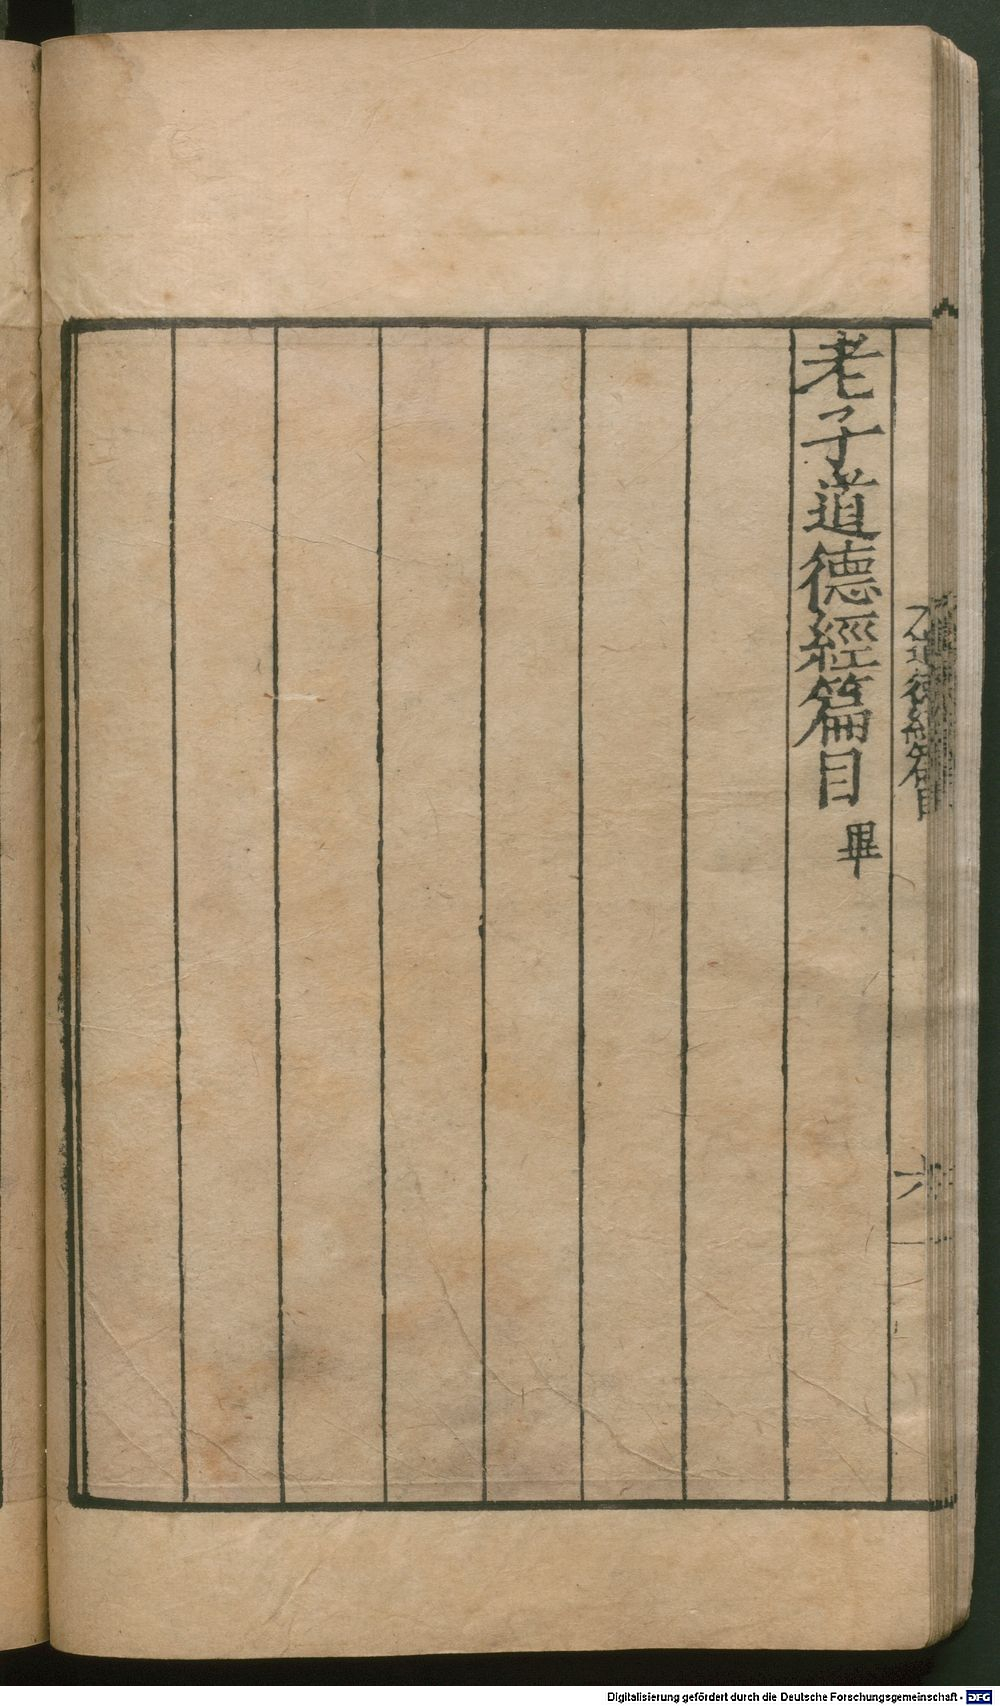 老子道德經篇目畢
道德經篇目
六
Digitalisierung gefördert durch die Deutsche Forschungsgemeinschaft - DFG